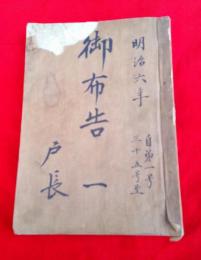 明治六年
自第一号
三十五号迄
御布告 一
戸長